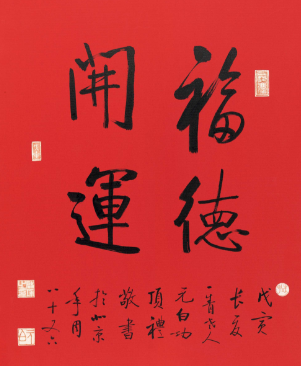 福德
開運
戊寅
長夏
人
元白功
頂禮
敬書
於北京
年周
八十又六